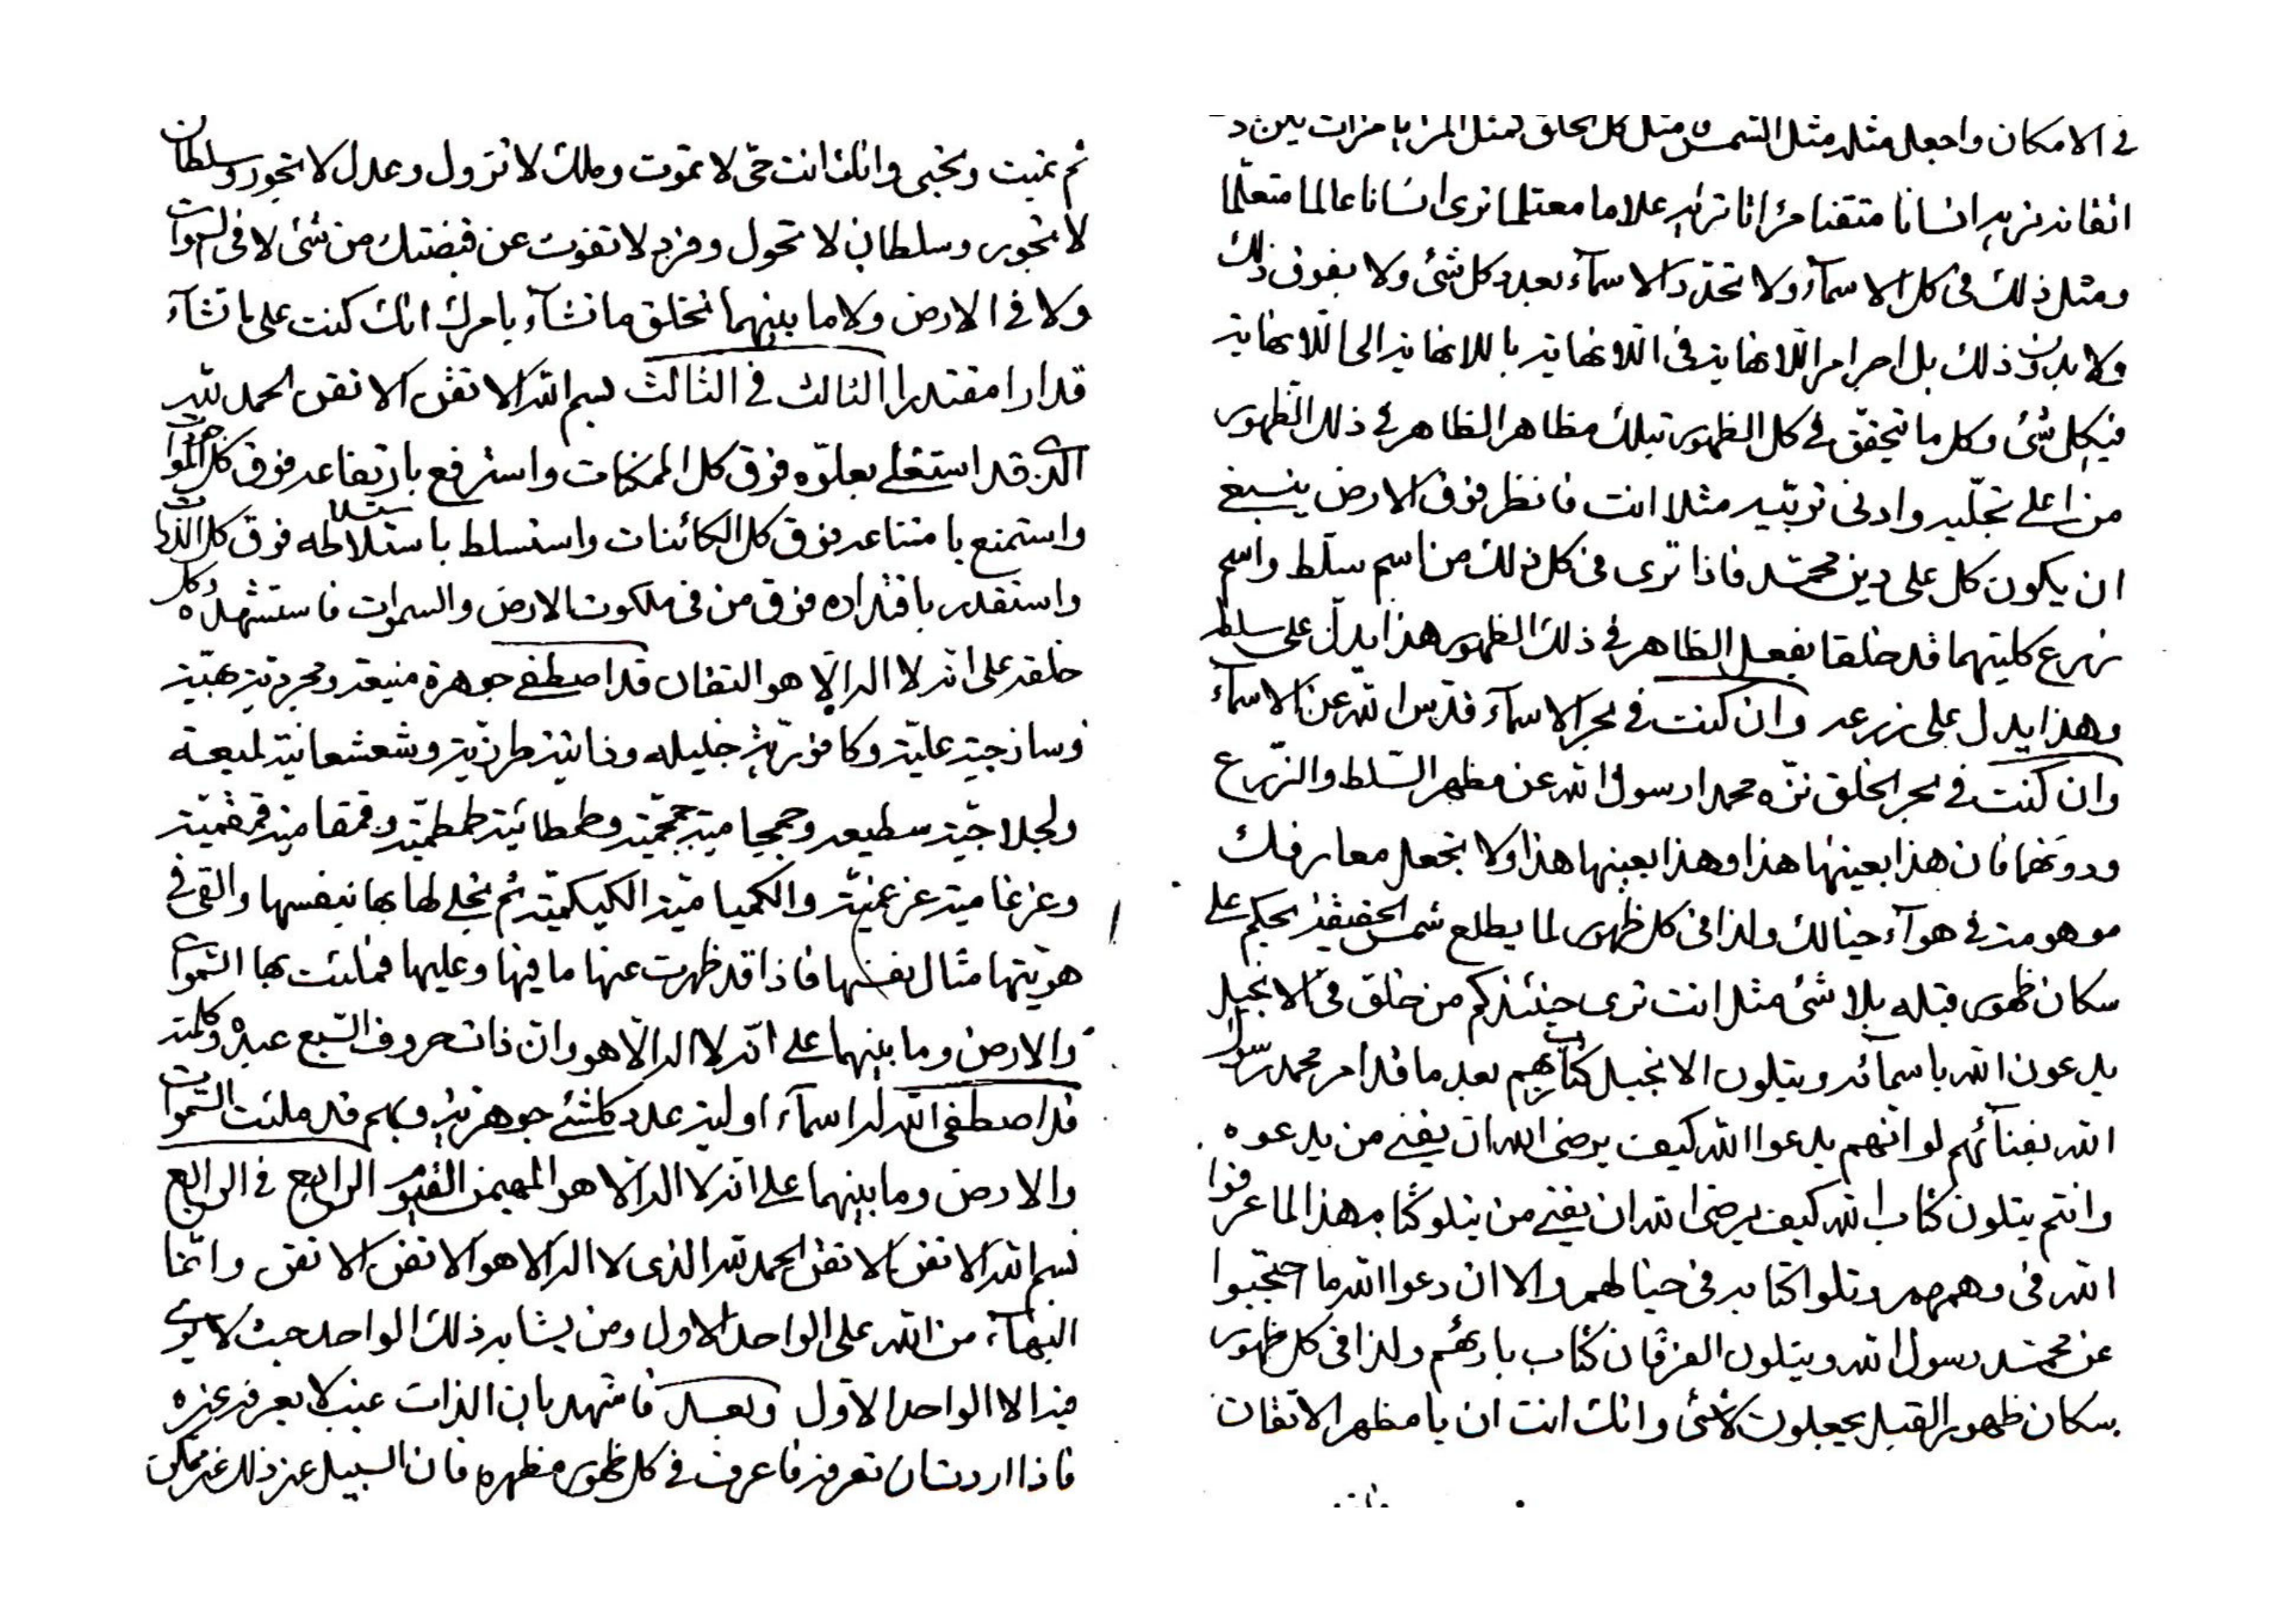 ثم تميت وتحيى وانك انت حى لا تموت وملك لا تزول وعدل لا تجور وسلطان
لا تجور وسلطان لا تحول وفرد لا تفوت عن قبضتك من شئ لا فى السموات
ولا فى الارض ولا ما بينهما تخلق ما تشآء بامرك انك كنت على ما تشآء
قدارا مقتدرا الثالث فى الثالث بسم الله الاتقن الاتقن الحمد لله
الذى قد استعلى بعلوه فوق كل الممكنات واسترفع بارتفاعه فوق كل الموجودات
واستمنع بامتناعه فوق كل الكائنات واستسلط باستلاطه فوق كل الذرات
واستقدر باقتداره فوق من فى ملكوت الارض والسموات فاستشهده وكل
خلقه على انه لا اله الا هو التقان قد اصطفى جوهرة منيعة ومجردية
وساذجية علية وكافورية جليله وذاتية طرزية وشعشعانية لميعة
هويتها مثال نفسها فاذا قد ظهرت عنها ما فيها وعليها فملئت بها السموات
والارض وما بينهما على انه لا اله الا هو وان ذات حروف السبع عبده وكلمته
قد اصطفى الله له اسمآء اولية عدد كلشئ جوهرية وبهم قد ملئت السموات
والارض وما بينهما على انه لا اله الا هو المهيمن القيوم الرابع فى الرابع
بسم الله الاتقن الاتقن الحمد لله الذى لا اله الا هو الاتقن الاتقن وانما
البهآء من الله على الواحد الاول ومن يشابه ذلك الواحد حيث لا يرى
فيه الا الواحد الاول وبعد فاشهد بان الذات غيب لا يعرفه غيره
فاذا اردت ان تعرفه فاعرف فى كل ظهور مظهره فان السبيل غير ذلك غير ممكن
فى الامكان واجعل مثله مثل الشمس مثل كل الخلق كمثل المرايا
اتقانه تريه انسانا متقنا علاما معتلما ترى انسانا عالما متعلما
ومثل ذلك فى كل الاسمآء ولا تحدد الاسمآء بعدد كل شئ ولا بفوق ذلك
ولا بدون ذلك بل اجر امر اللانهاية فى اللانهاية باللانهاية الى اللانهاية
فيكل شئ وكل ما يتحقق فى كل الظهور تبلك مظاهر الظاهر فى ذلك الظهور
من اعلى تجليه وادنى تربيه مثلا انت فانظر فوق الارض ينبغى
ان يكون كل على دين محمد فاذا ترى فى كل ذلك من اسم سلط واسم
زرع كليتهما قد خلقا بفعل الظاهر فى ذلك الظهور هذا يدل على سلطه
وهذا يدل على زرعه وان كنت فى بحر الاسمآء قدس الله عن الاسمآء
وان كنت فى بحر الخلق نزه محمدا رسول الله عن مظهر السلط والزرع
ودونهما فان هذا بعينها هذا وهذا بعينها هذا ولا تجعل معارفك
موهومة فى هوآء خيالك ولذا فى كل ظهور لما يطلع شمس الحقيقة يحكم على
سكان ظهور قبله بلا شئ مثل انت ترى حينئذ كم من خلق فى الانجيل
يدعون الله باسمائه ويتلون الانجيل كتابهم بعد ما قد امر محمد رسول
الله بفنآئهم لو انهم يدعوا الله كيف يرضى الله ان يفنى من يدعوه
وانتم يتلون كتاب الله كيف يرضى الله ان يفنى من يتلو كتابه هذا لما عرفوا
الله فى وهمهم وتلوا كتابه فى خيالهم والا ان دعوا الله ما احتجبوا
عن محمد رسول الله ويتلون الفرقان كتاب بارئهم ولذا فى كل ظهور
سكان ظهور القبل يجعلون لاشئ وانك انت ان يا مظهر الاتقان